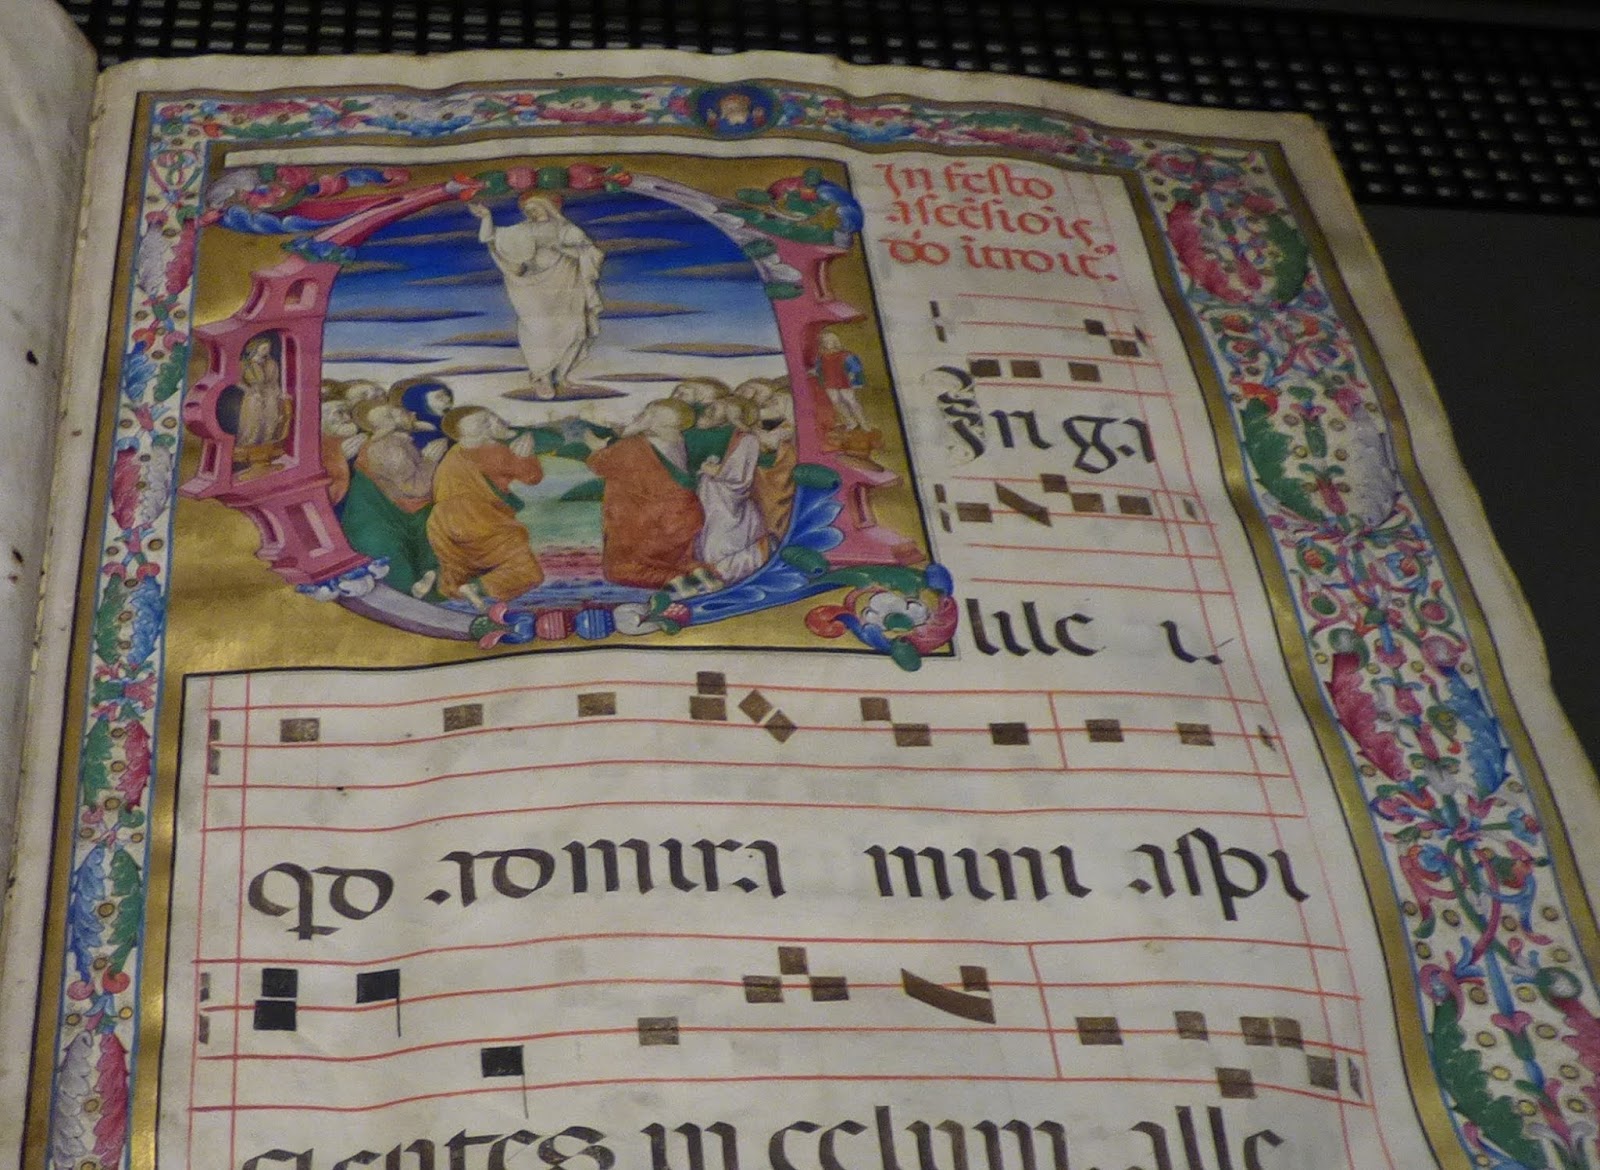 In festo
ascēsiōis
dō ītroit9.
Iri ga
lile i.
qd admira mini aspi
cientes in celum. alle